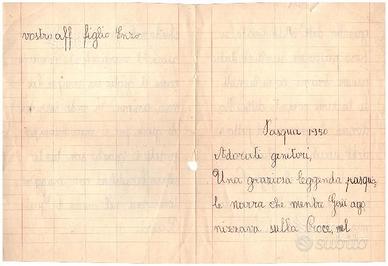 vostro aff figlio Enzo
Pasqua 1950
Adorati genitori,
Una graziosa leggenda pasqua
le narra che mentre Gesù ago
nizzava sulla Croce, nel
subito